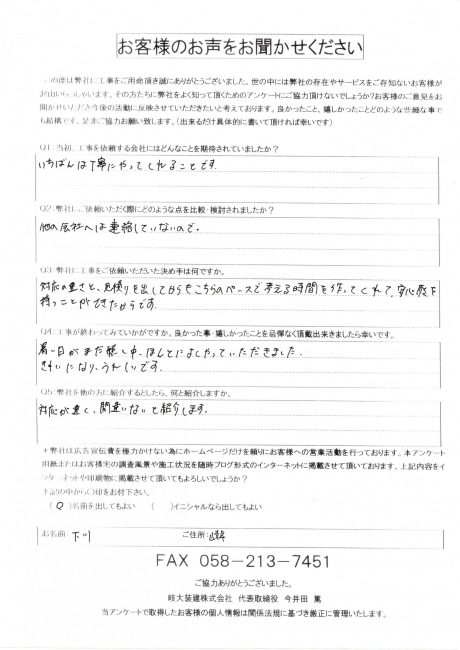 お客様のお声をお聞かせください
この度は弊社に工事をご用命頂き誠にありがとうございました。世の中には弊社の存在やサービスをご存知ないお客様が
沢山いらっしゃいます。その方たちに弊社をよく知って頂くためのアンケートにご協力頂けないでしょうか?お客様のご意見をお
聞かせいただき今後の活動に反映させていただきたいと考えております。良かったこと、嬉しかったことどのような些細な事で
も結構です。是非ご協力お願い致します。(出来るだけ具体的に書いて頂ければ幸いです)
Q1:当初、工事を依頼する会社にはどんなことを期待されていましたか?
いちばんは丁寧にやってくれることです。
Q2:弊社にご依頼いただく際にどのような点を比較・検討されましたか?
他の会社へは連絡していないので。
Q3:弊社に工事をご依頼いただいた決め手は何ですか。
対応の速さと、見積りを出してからもこちらのペースで考える時間を作ってくれて、安心感を
持つことができたからです。
Q4:工事が終わってみていかがですか。良かった事・嬉しかったことを忌憚なく頂戴出来ましたら幸いです。
暑い日がまだ続く中、ほんとによくやっていただきました。
きれいになり、うれしいです。
Q5:弊社を他の方に紹介するとしたら、何と紹介しますか。
対応が速く、間違いないと紹介します。
*弊社は広告宣伝費を極力かけない為にホームページだけを頼りにお客様への営業活動を行っております。本アンケート
用紙またはお客様宅の調査風景や施工状況を随時ブログ形式のインターネットに掲載させて頂いております。上記内容をイ
ンターネットや印刷物に掲載させて頂いてもよろしいでしょうか?
下記の中から〇印をお付下さい。
(○)名前を出してもよい ( )イニシャルなら出してもよい
お名前: 下川 ご住所:
FAX 058-213-7451
ご協力ありがとうございました。
岐大装建株式会社 代表取締役 今井田 篤
当アンケートで取得したお客様の個人情報は関係法規に基づき厳正に管理いたします。